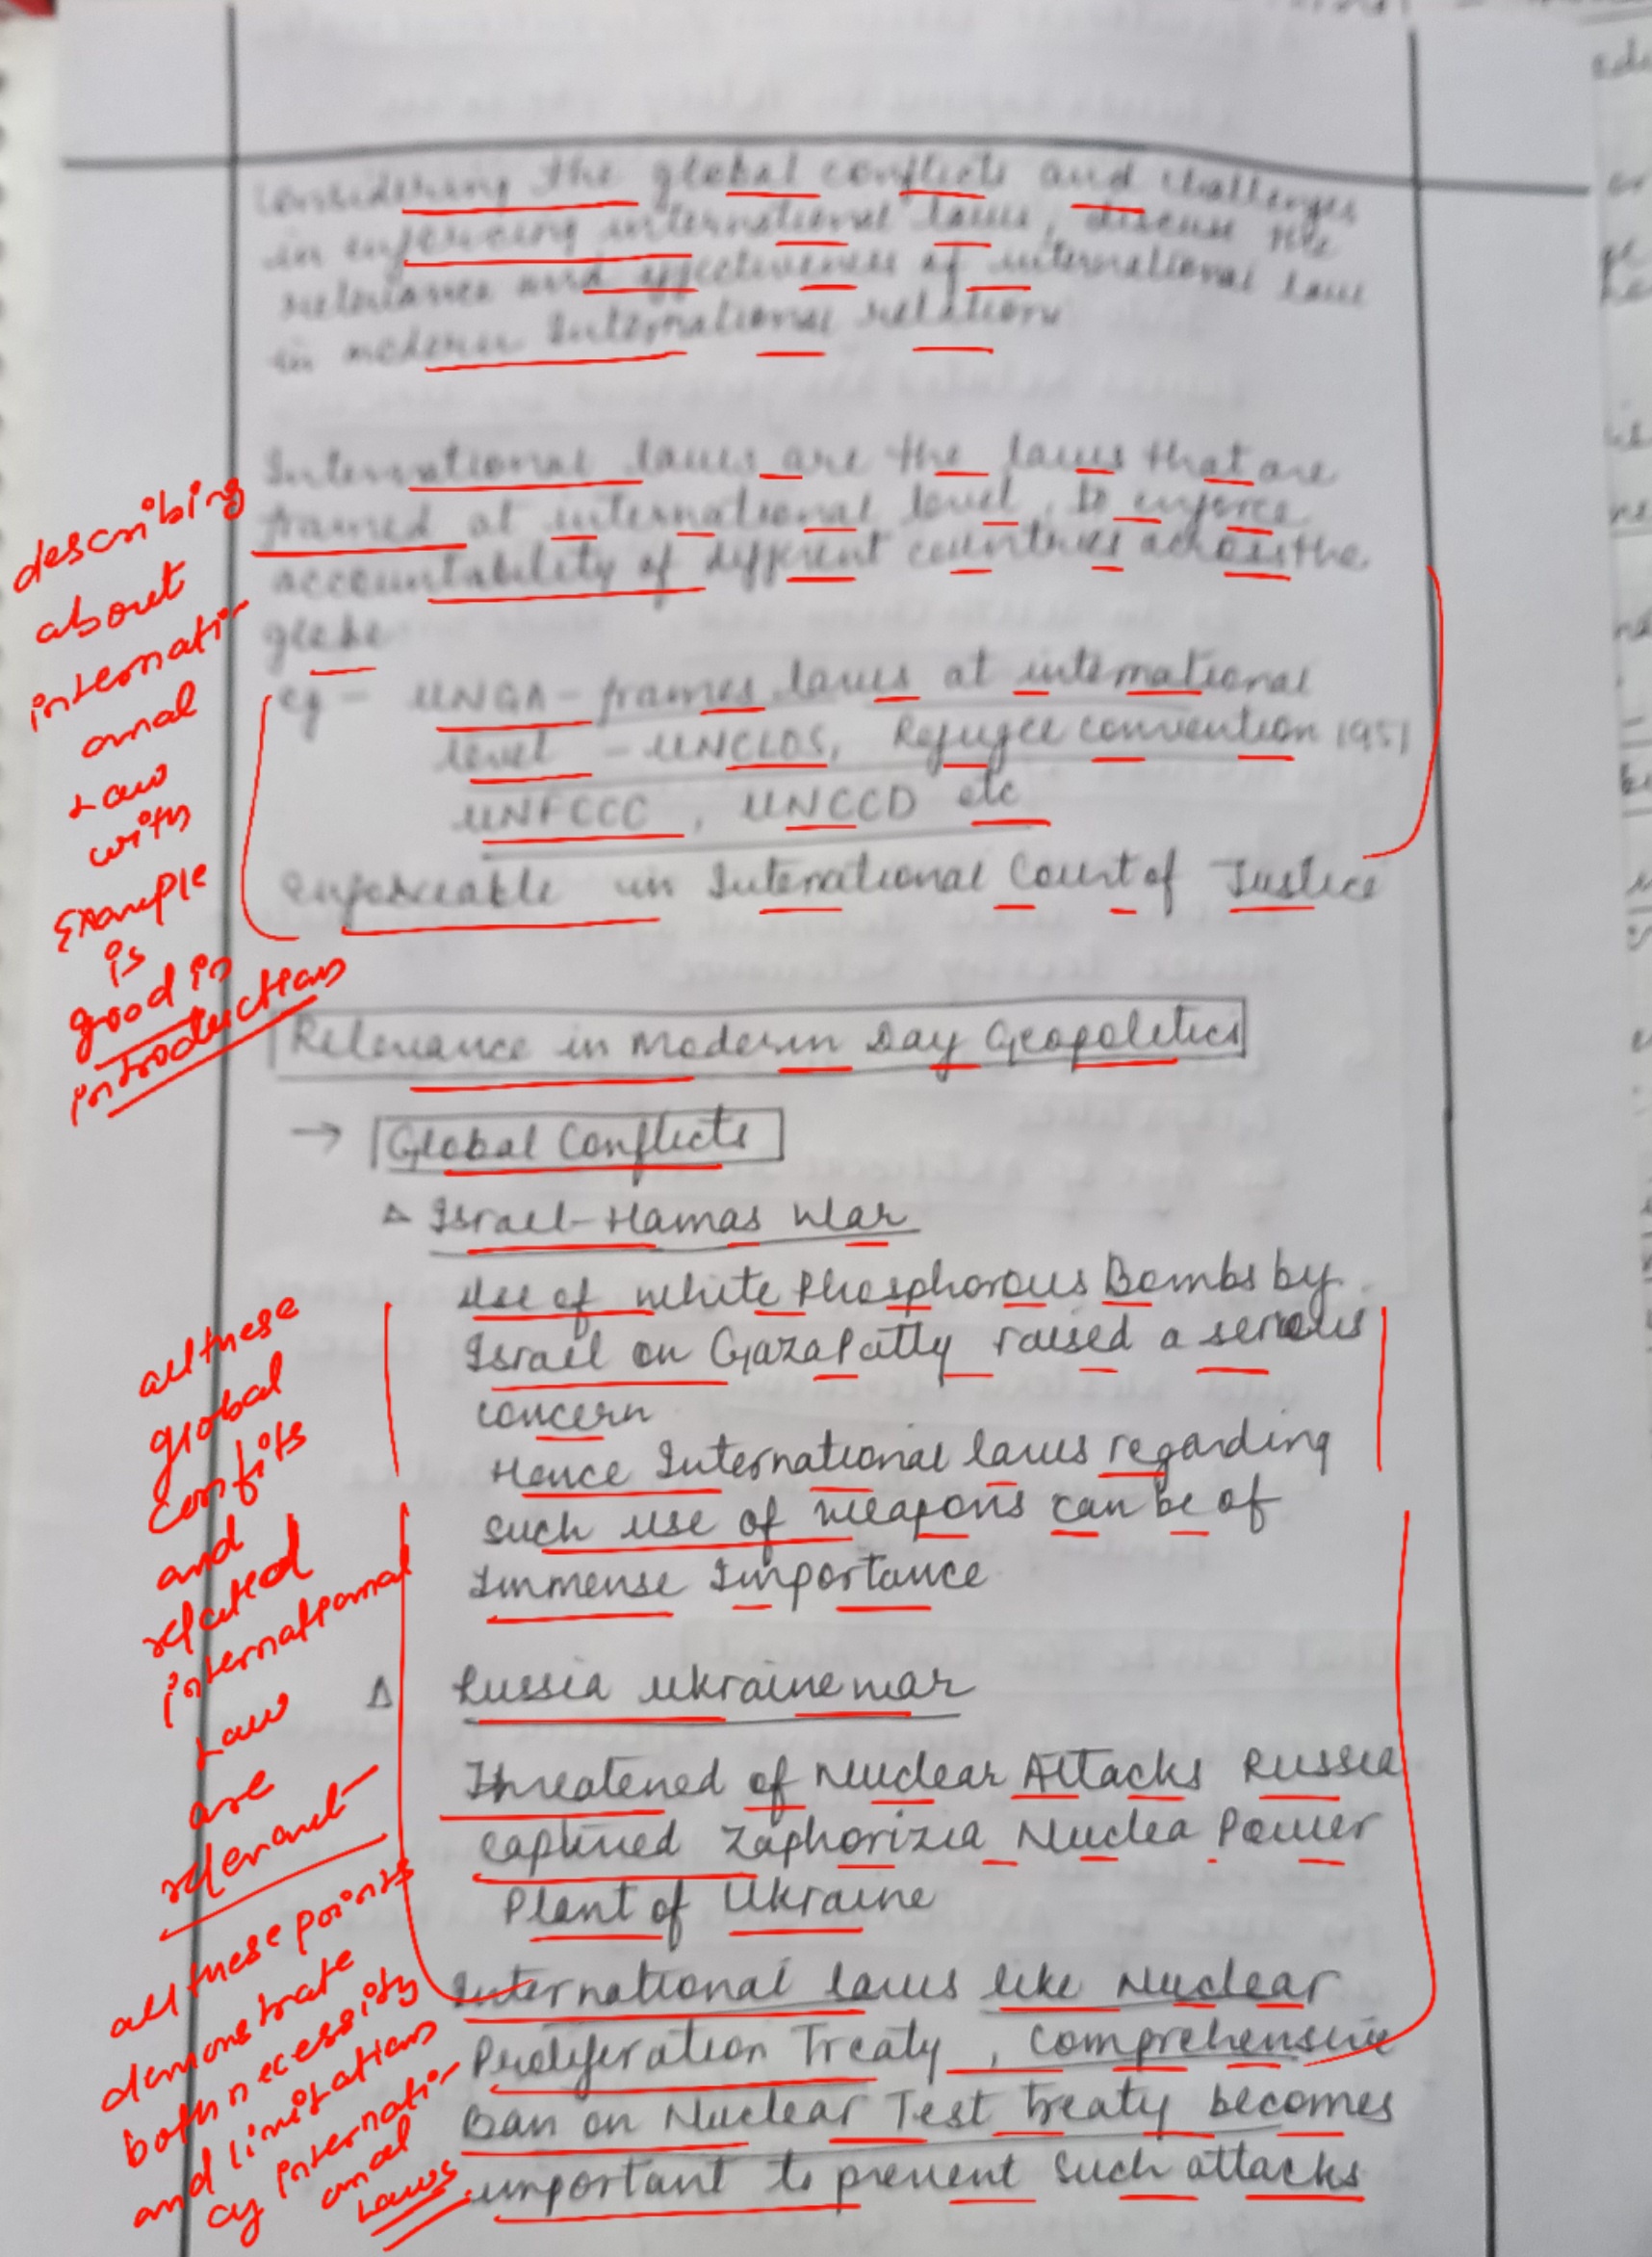 Considering the global conflicts and challenges
in enforcing international laws, discuss the
relevance and effectiveness of international laws
in modern International relations
International laws are the laws that are
framed at international level, to enforce
accountability of different countries across the
globe
eg - UNGA - frames laws at international
level - UNCLOS, Refugee convention 1951
UNFCCC, UNCCD etc
enforceable in International Court of Justice
describing
about
internati-
onal
Law
with
Example
is
good in
introduction
Relevance in Modern Day Geopolitics
→ Global Conflicts
△ Israel-Hamas War
Use of white Phosphorous Bombs by
Israel on Gaza Patty raised a serious
concern
Hence International laws regarding
such use of weapons can be of
Immense Importance
△ Russia Ukraine war
Threatened of Nuclear Attacks Russia
captured Zaphorizia Nuclea Power
Plant of Ukraine
International laws like Nuclear
Proliferation Treaty, Comprehensive
Ban on Nuclear Test treaty becomes
important to prevent such attacks
all these
global
confits
and
related
international
Law
are
relevant
all these points
demonstrate
both necessity
and limitations
internati-
onal
Laws.